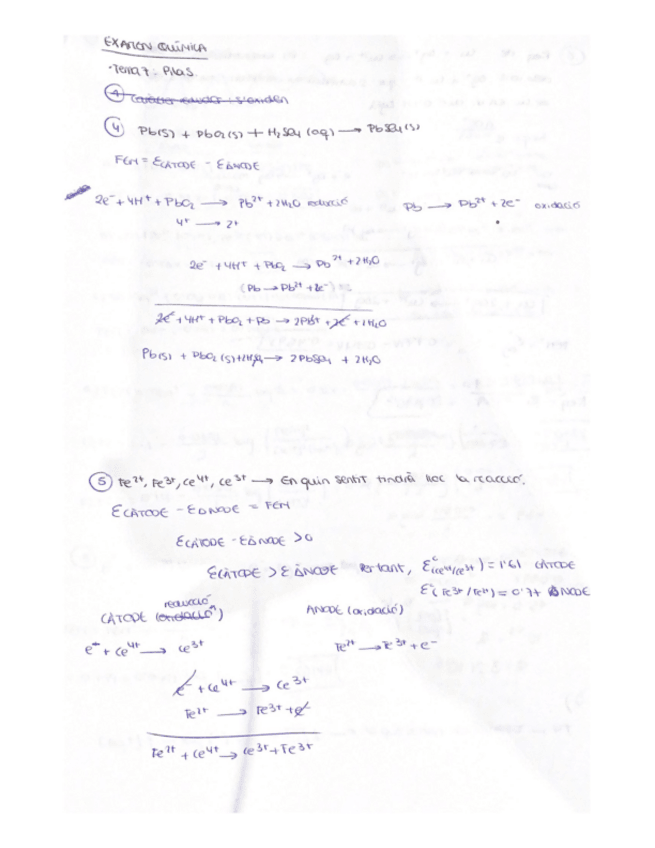 EXAMEN QUÍMICA
·Tema 7: Pilas.
④ Pb(s) + PbO₂(s) + H₂SO₄(aq) → PbSO₄(s)
FEM = ƐCÀTODE - ƐÀNODE
2e⁻ + 4H⁺ + PbO₂ → Pb²⁺ + 2H₂O reducció Pb → Pb²⁺ + 2e⁻ oxidació
4⁺ → 2⁺
2e⁻ + 4H⁺ + PbO₂ → Pb²⁺ + 2H₂O
(Pb → Pb²⁺ + 2e⁻)
2e⁻ + 4H⁺ + PbO₂ + Pb → 2Pb²⁺ + 2e⁻ + 2H₂O
Pb(s) + PbO₂(s) + 2H₂SO₄ → 2PbSO₄ + 2H₂O
⑤ Fe²⁺, Fe³⁺, Ce⁴⁺, Ce³⁺ → En quin sentit tindrà lloc la reacció.
ƐCÀTODE - ƐÀNODE = FEM
ƐCÀTODE - ƐÀNODE > 0
ƐCÀTODE > ƐÀNODE Per tant, Ɛ°(Ce⁴⁺/Ce³⁺) = 1'61 CÀTODE
Ɛ°(Fe³⁺/Fe²⁺) = 0'77 ÀNODE
reducció
CÀTODE (oxidació) ÀNODE (oxidació)
e⁻ + Ce⁴⁺ → Ce³⁺ Fe²⁺ → Fe³⁺ + e⁻
e⁻ + Ce⁴⁺ → Ce³⁺
Fe²⁺ → Fe³⁺ + e⁻
Fe²⁺ + Ce⁴⁺ → Ce³⁺ + Fe³⁺